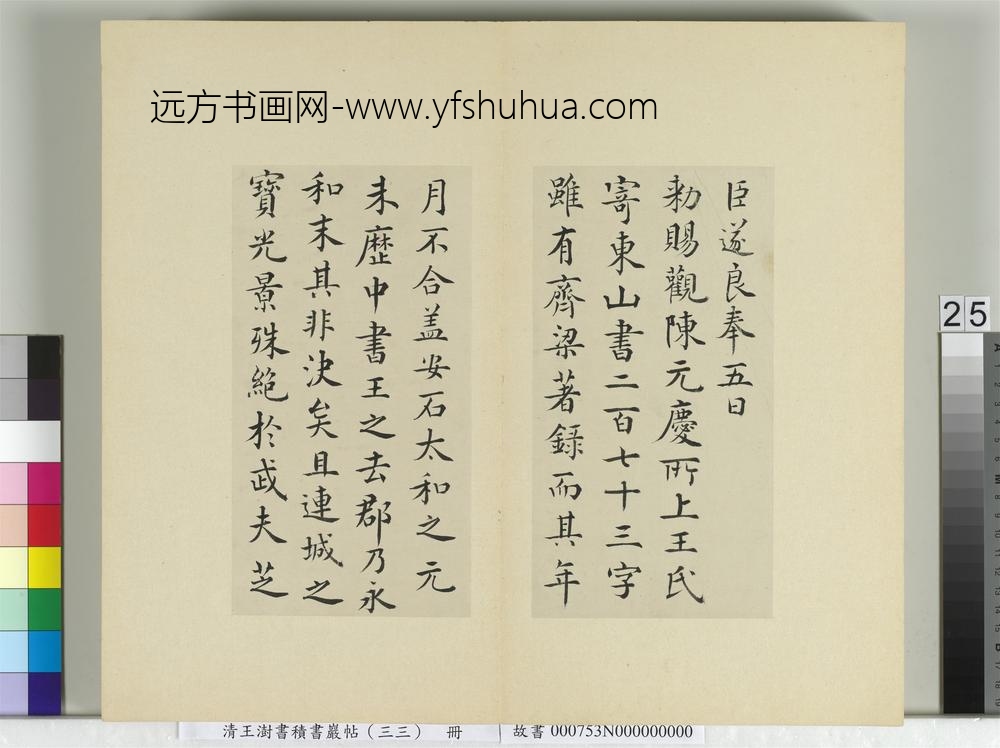 远方书画网-www.yfshuhua.com
臣遂良奉五日
勑賜觀陳元慶所上王氏
寄東山書二百七十三字
雖有齊梁著録而其年
月不合盖安石太和之元
未歷中書王之去郡乃永
和末其非決矣且連城之
寶光景殊絶於武夫芝
25
清王澍書積書巖帖（三三） 冊
故書 000753N000000000